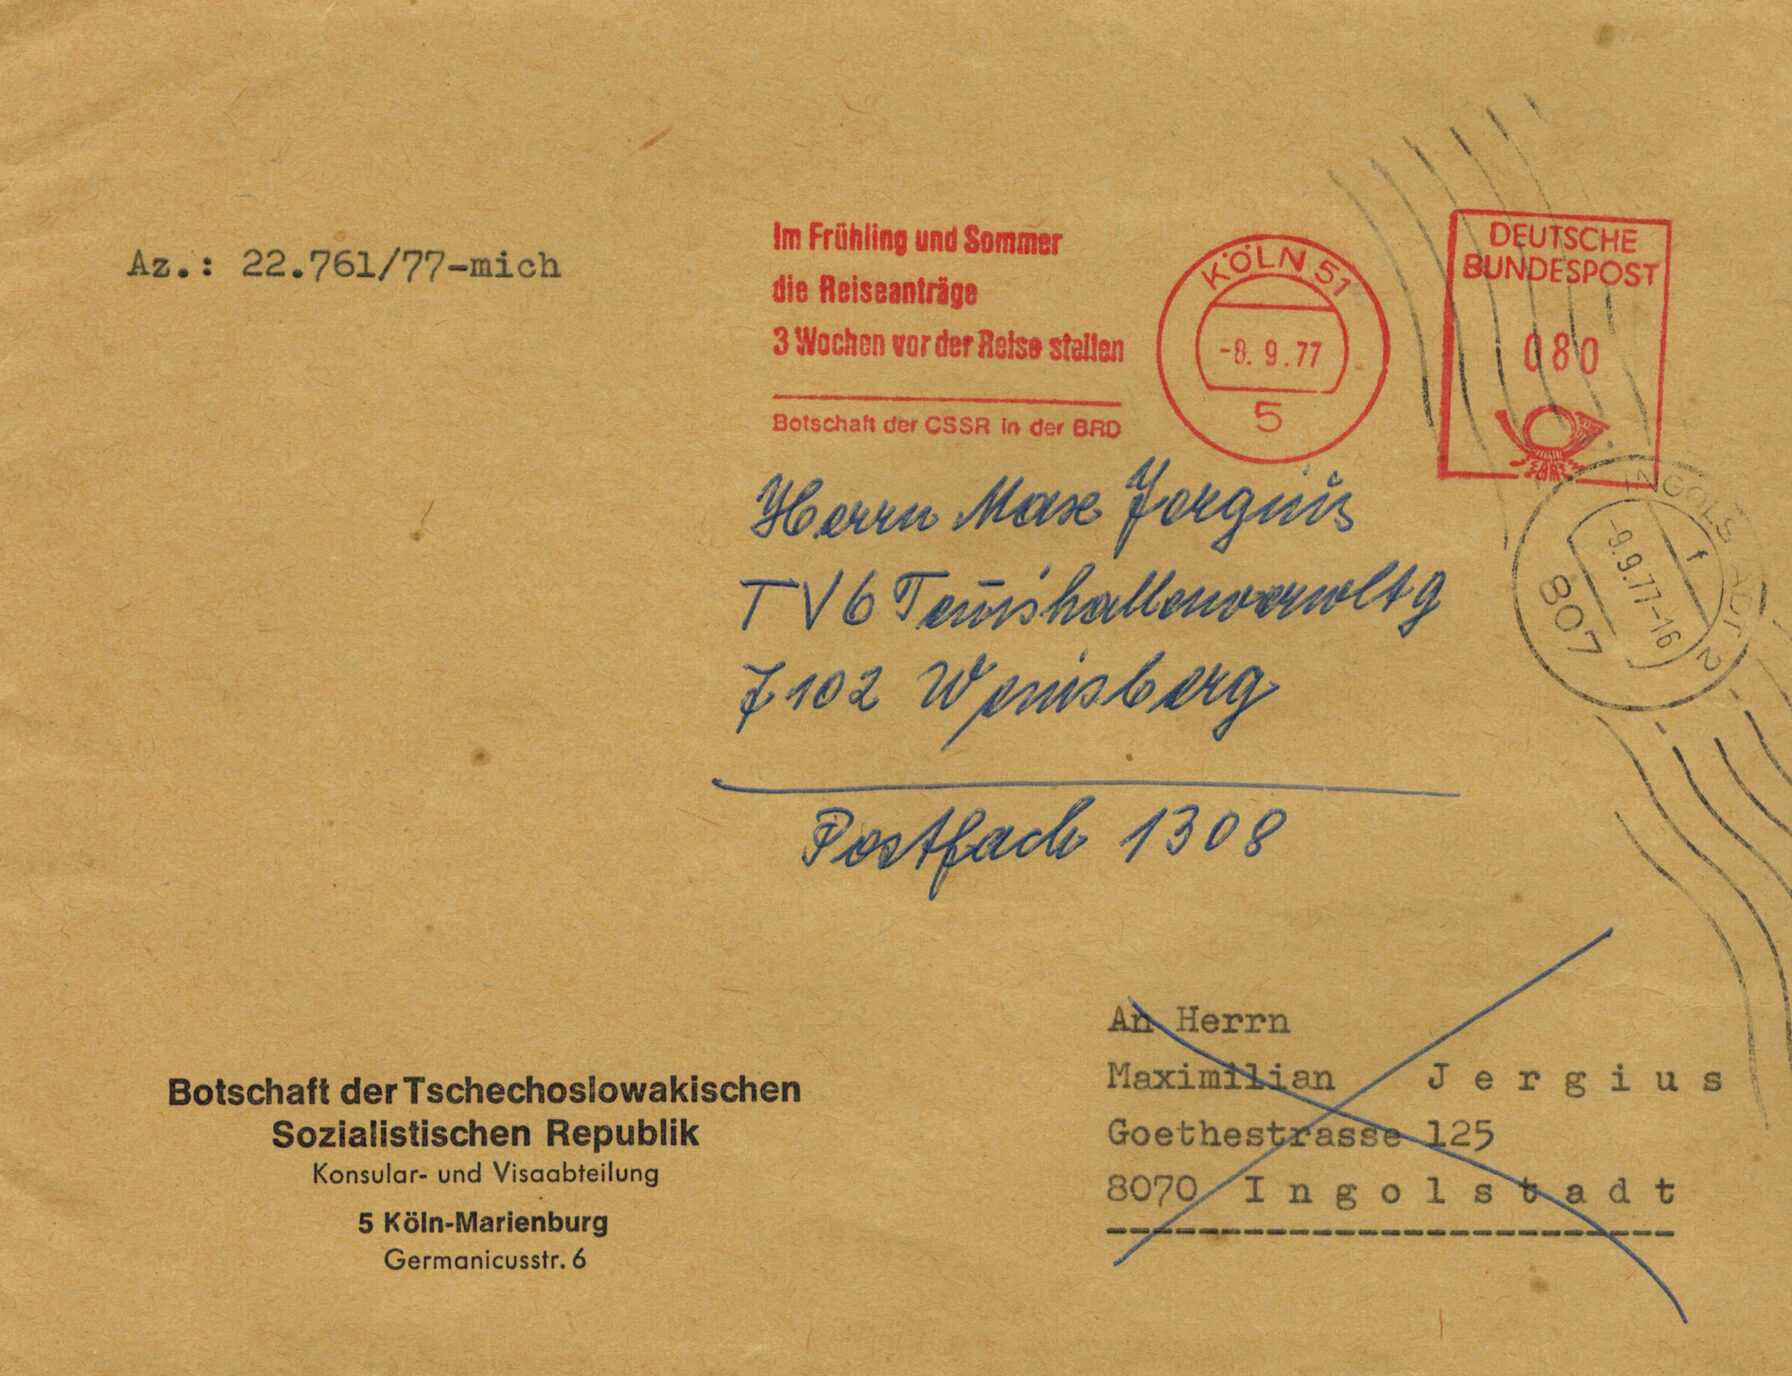 Az.: 22.761/77-mich
Im Frühling und Sommer
die Reiseanträge
3 Wochen vor der Reise stellen
Botschaft der CSSR in der BRD
KÖLN 51
-8. 9.77
5
DEUTSCHE
BUNDESPOST
080
INGOLSTADT 2
f
-9.9.77-16
807
Herrn Max Jergius
TVG Tennishallenverwltg
7102 Weinsberg
Postfach 1308
An Herrn
Maximilian Jergius
Goethestrasse 125
8070 Ingolstadt
Botschaft der Tschechoslowakischen
Sozialistischen Republik
Konsular- und Visaabteilung
5 Köln-Marienburg
Germanicusstr. 6